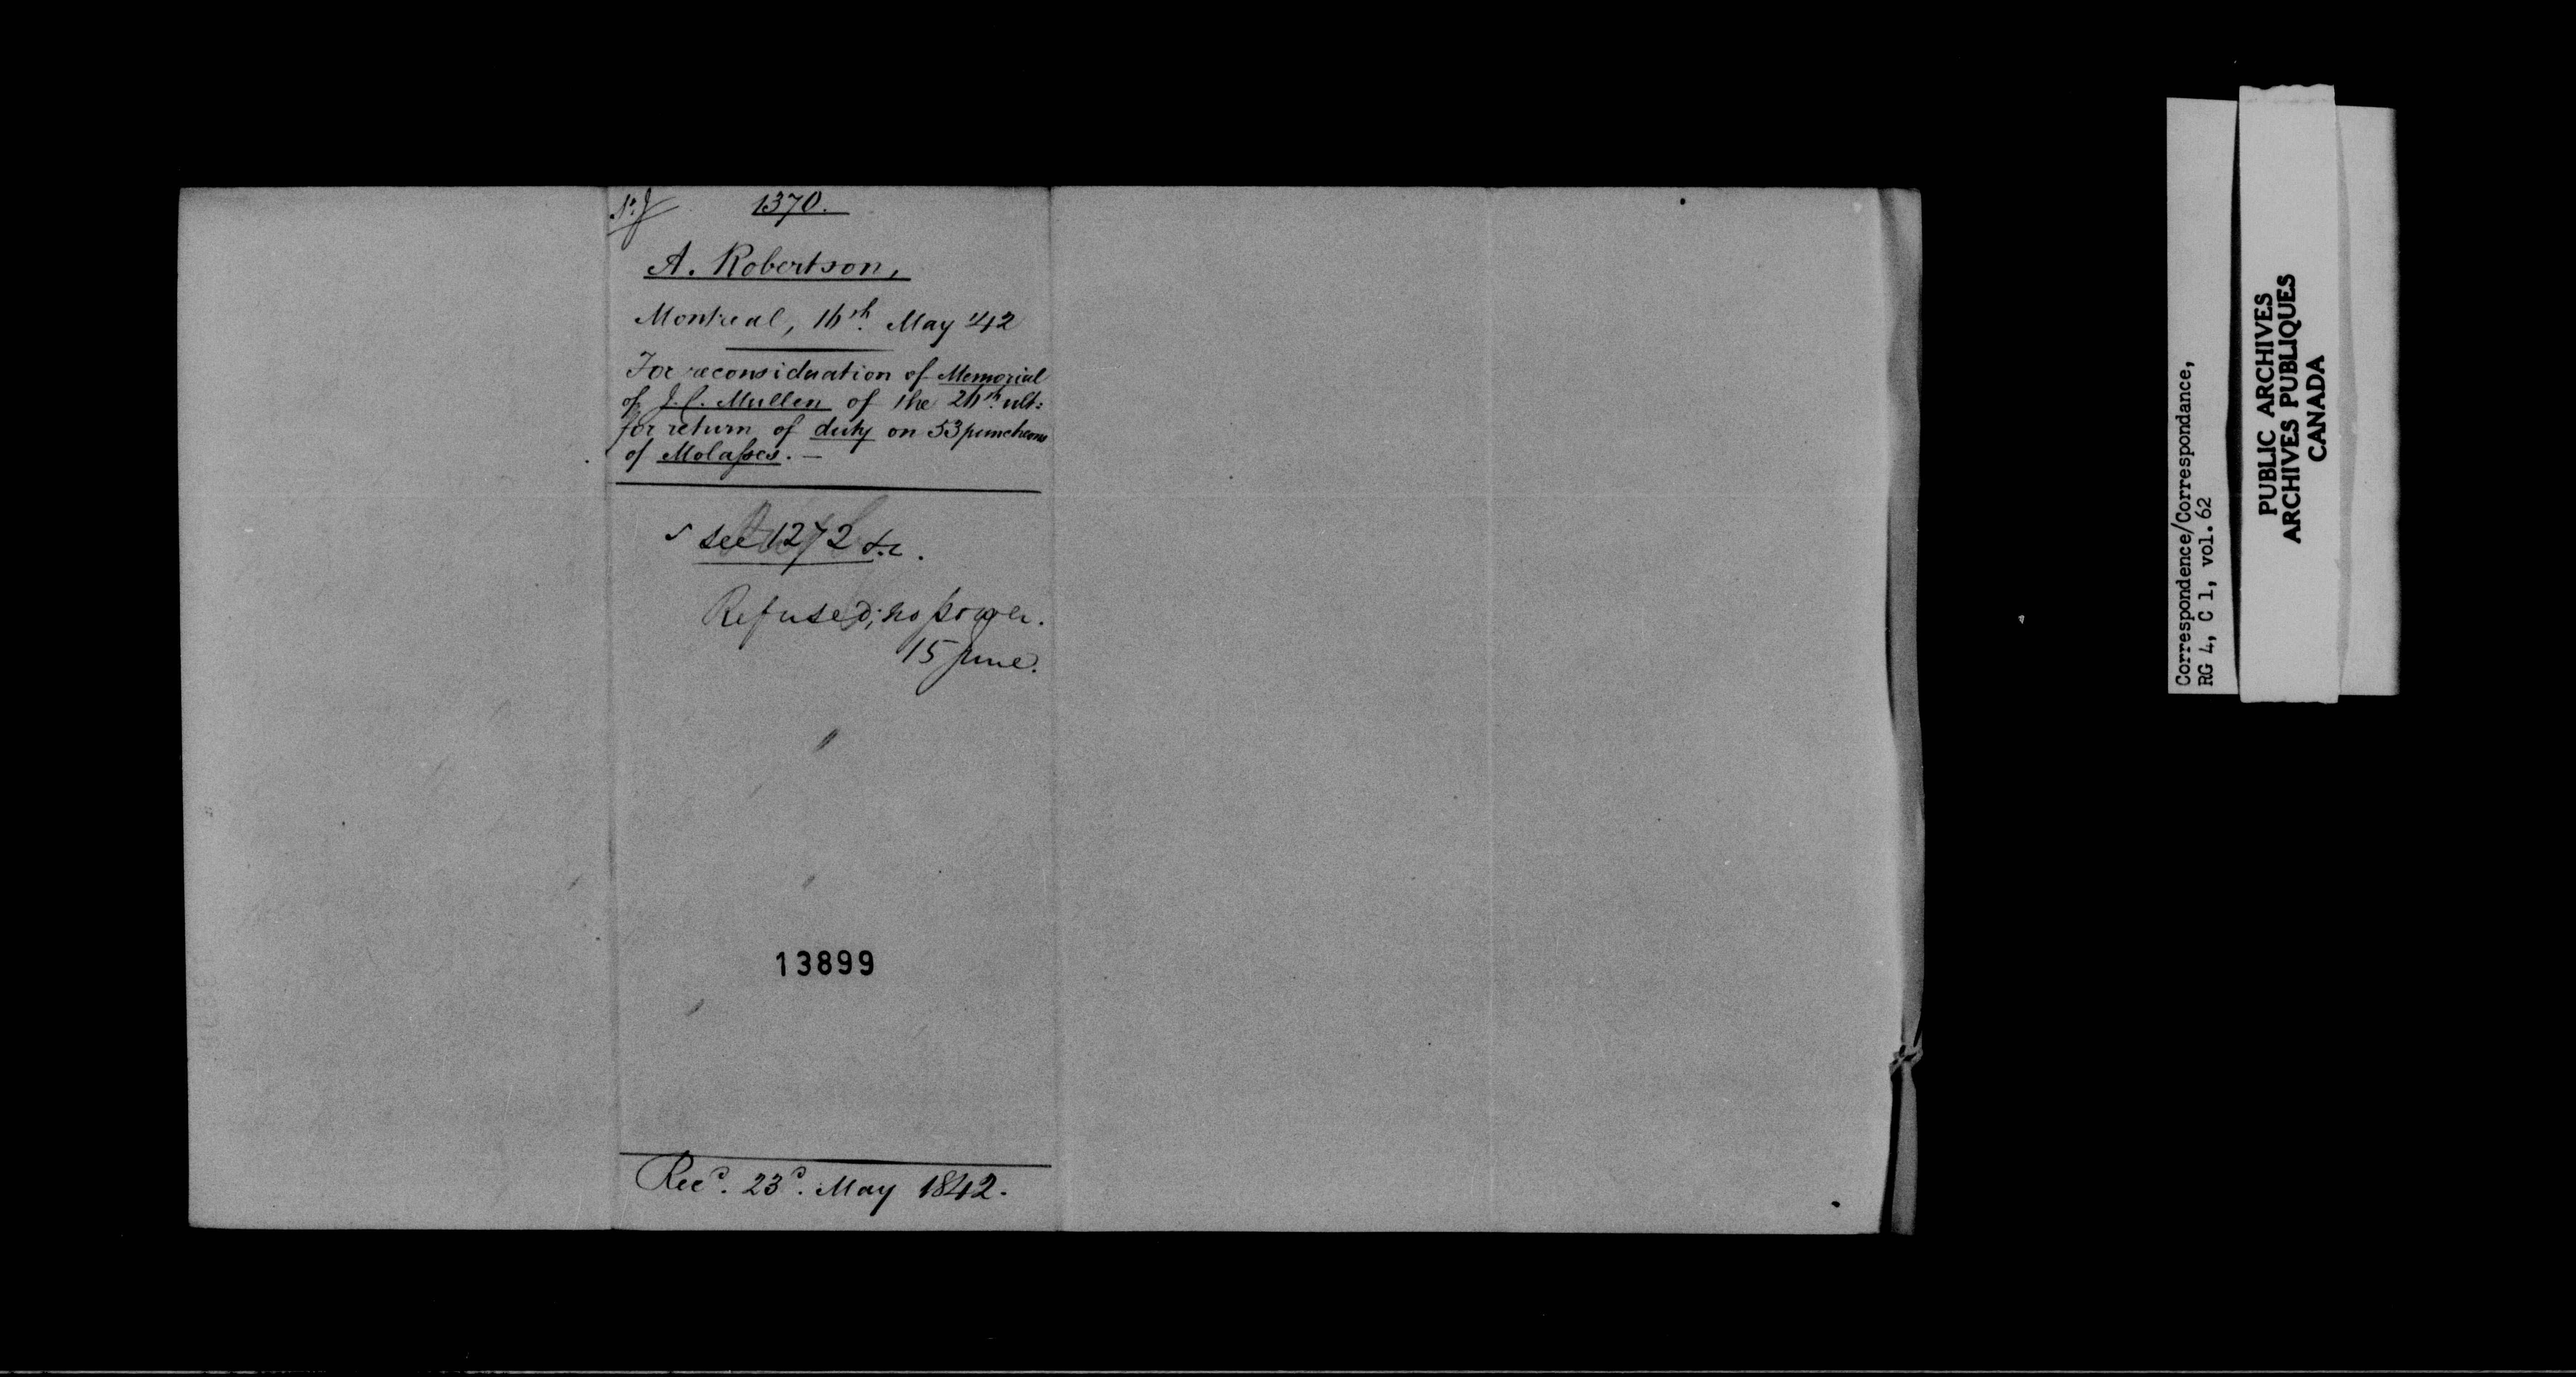 1370.
A. Robertson,
Montreal, 16th. May '42
For reconsideration of Memorial
of J. C. Mullen of the 26th. ult:
for return of duty on 53 puncheons
of Molasses. —
see 1272 &c.
Refused; no power.
15 June.
13899
Recd. 23d. May 1842.
Correspondence/Correspondance,
RG 4, C 1, vol. 62
PUBLIC ARCHIVES
ARCHIVES PUBLIQUES
CANADA